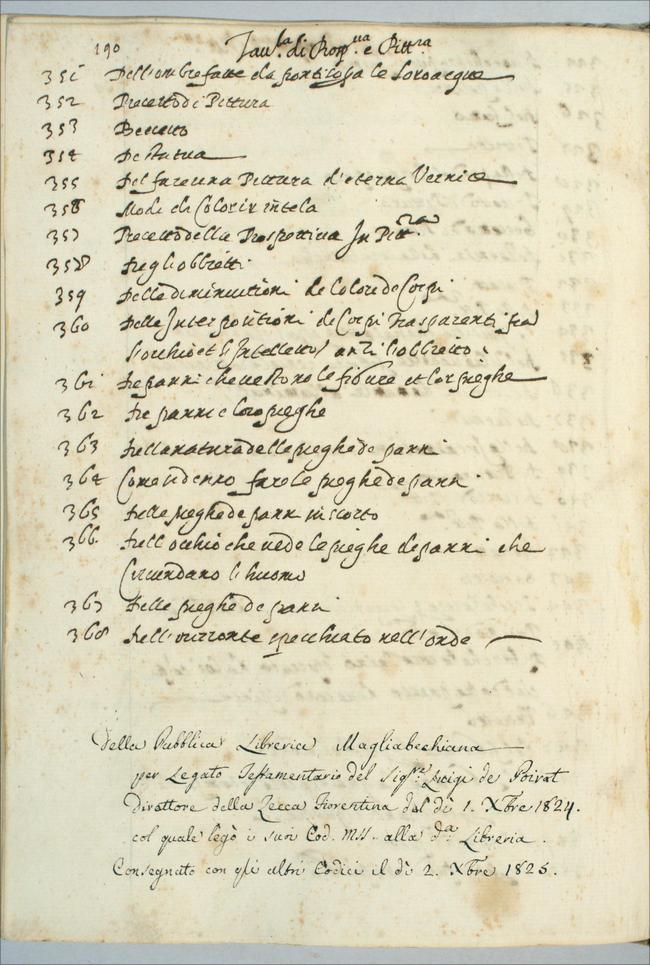 190
Tau.la di Prosp.ua e Pitt.ra
351 Dell'ombre fatte da ponti sopra le loro acque
352 Precetto di Pittura
353 Precetto
354 De Statua
355 Del fare una Pittura d'eterna Vernice
356 Modo di Colorir in tela
357 Precetto della Prospettiva In Pitt.ra
358 De gli obbietti
359 Della diminutioni de Colori de Corpi
360 Delle Interpositioni de Corpi Trasparenti fra
l'occhio et l'obbietto
361 De panni che vestono le figure et lor pieghe
362 De panni e loro pieghe
363 Della natura delle pieghe de panni
364 Come si denno fare le pieghe de panni
365 Delle pieghe de panni in scorto
366 Dell occhio che vede le pieghe de panni che
Circundano l'huomo
367 Delle pieghe de panni
368 Dell'orizzonte specchiato nell'onde
Della Pubblica Libreria Magliabechiana
per Legato Testamentario del Sig.re Luigi de Poirot
Direttore della Zecca Fiorentina dal dì 1. Xbre 1824.
col quale legò i suoi Cod. MSS. alla d.a Libreria.
Consegnato con gli altri Codici il dì 2. Xbre 1825.